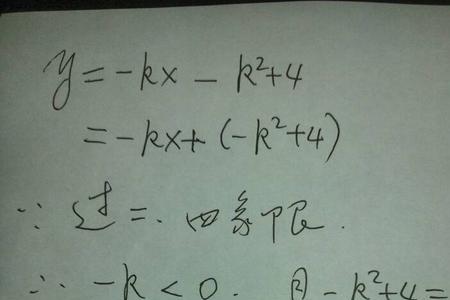 y=-kx-k²+4
=-kx+(-k²+4)
∵过二.四象限.
∴-k<0.且-k²+4=